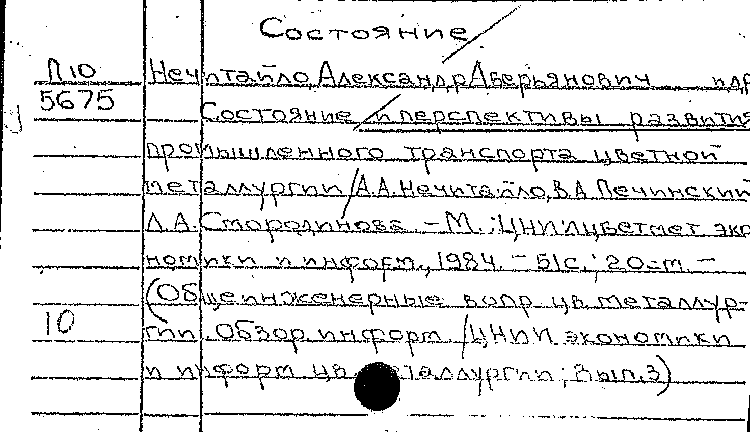 Состояние
П10 Нечитайло, Александр Аверьянович и др
5675 Состояние и перспективы развития
промышленного транспорта цветной
металлургии / А.А. Нечитайло, В.А. Печинский
Л.А. Смородинова. – М.: ЦНИИцветмет эко
номики и информ., 1984. – 51с.; 20см. –
(Общеинженерные вопр. цв. металлур-
10 гии. Обзор. информ / ЦНИИ экономики
и информ цв. металлургии; Вып. 3)